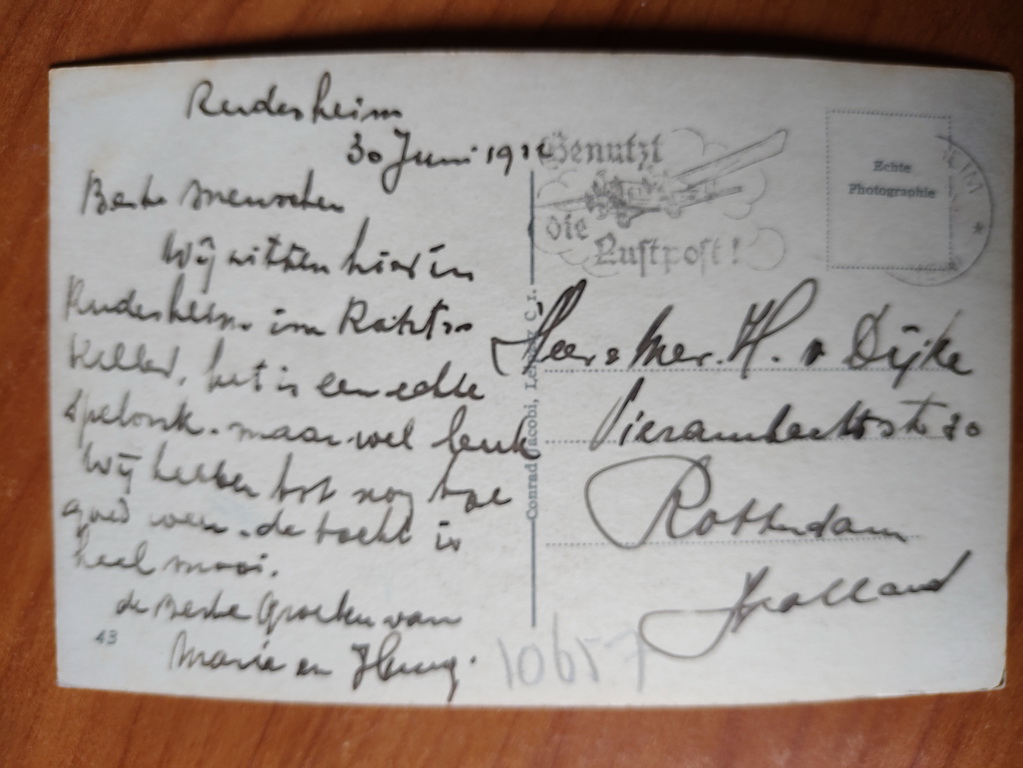 Rudesheim
30 Juni
Beste menschen
Wij zitten hier in
Rudesheim im Ratts-
Keller, het is een echte
spelonk. maar wel leuk
Wij hebben tot nog toe
goed weer. de tocht is
heel mooi.
de Beste Groeten van
Marie en
43
Benutzt
die
Luftpost!
Echte
Photographie
Conrad Jacobi,
Heer & Mev. H. v Dijke
30
Rotterdam
Holland
10657